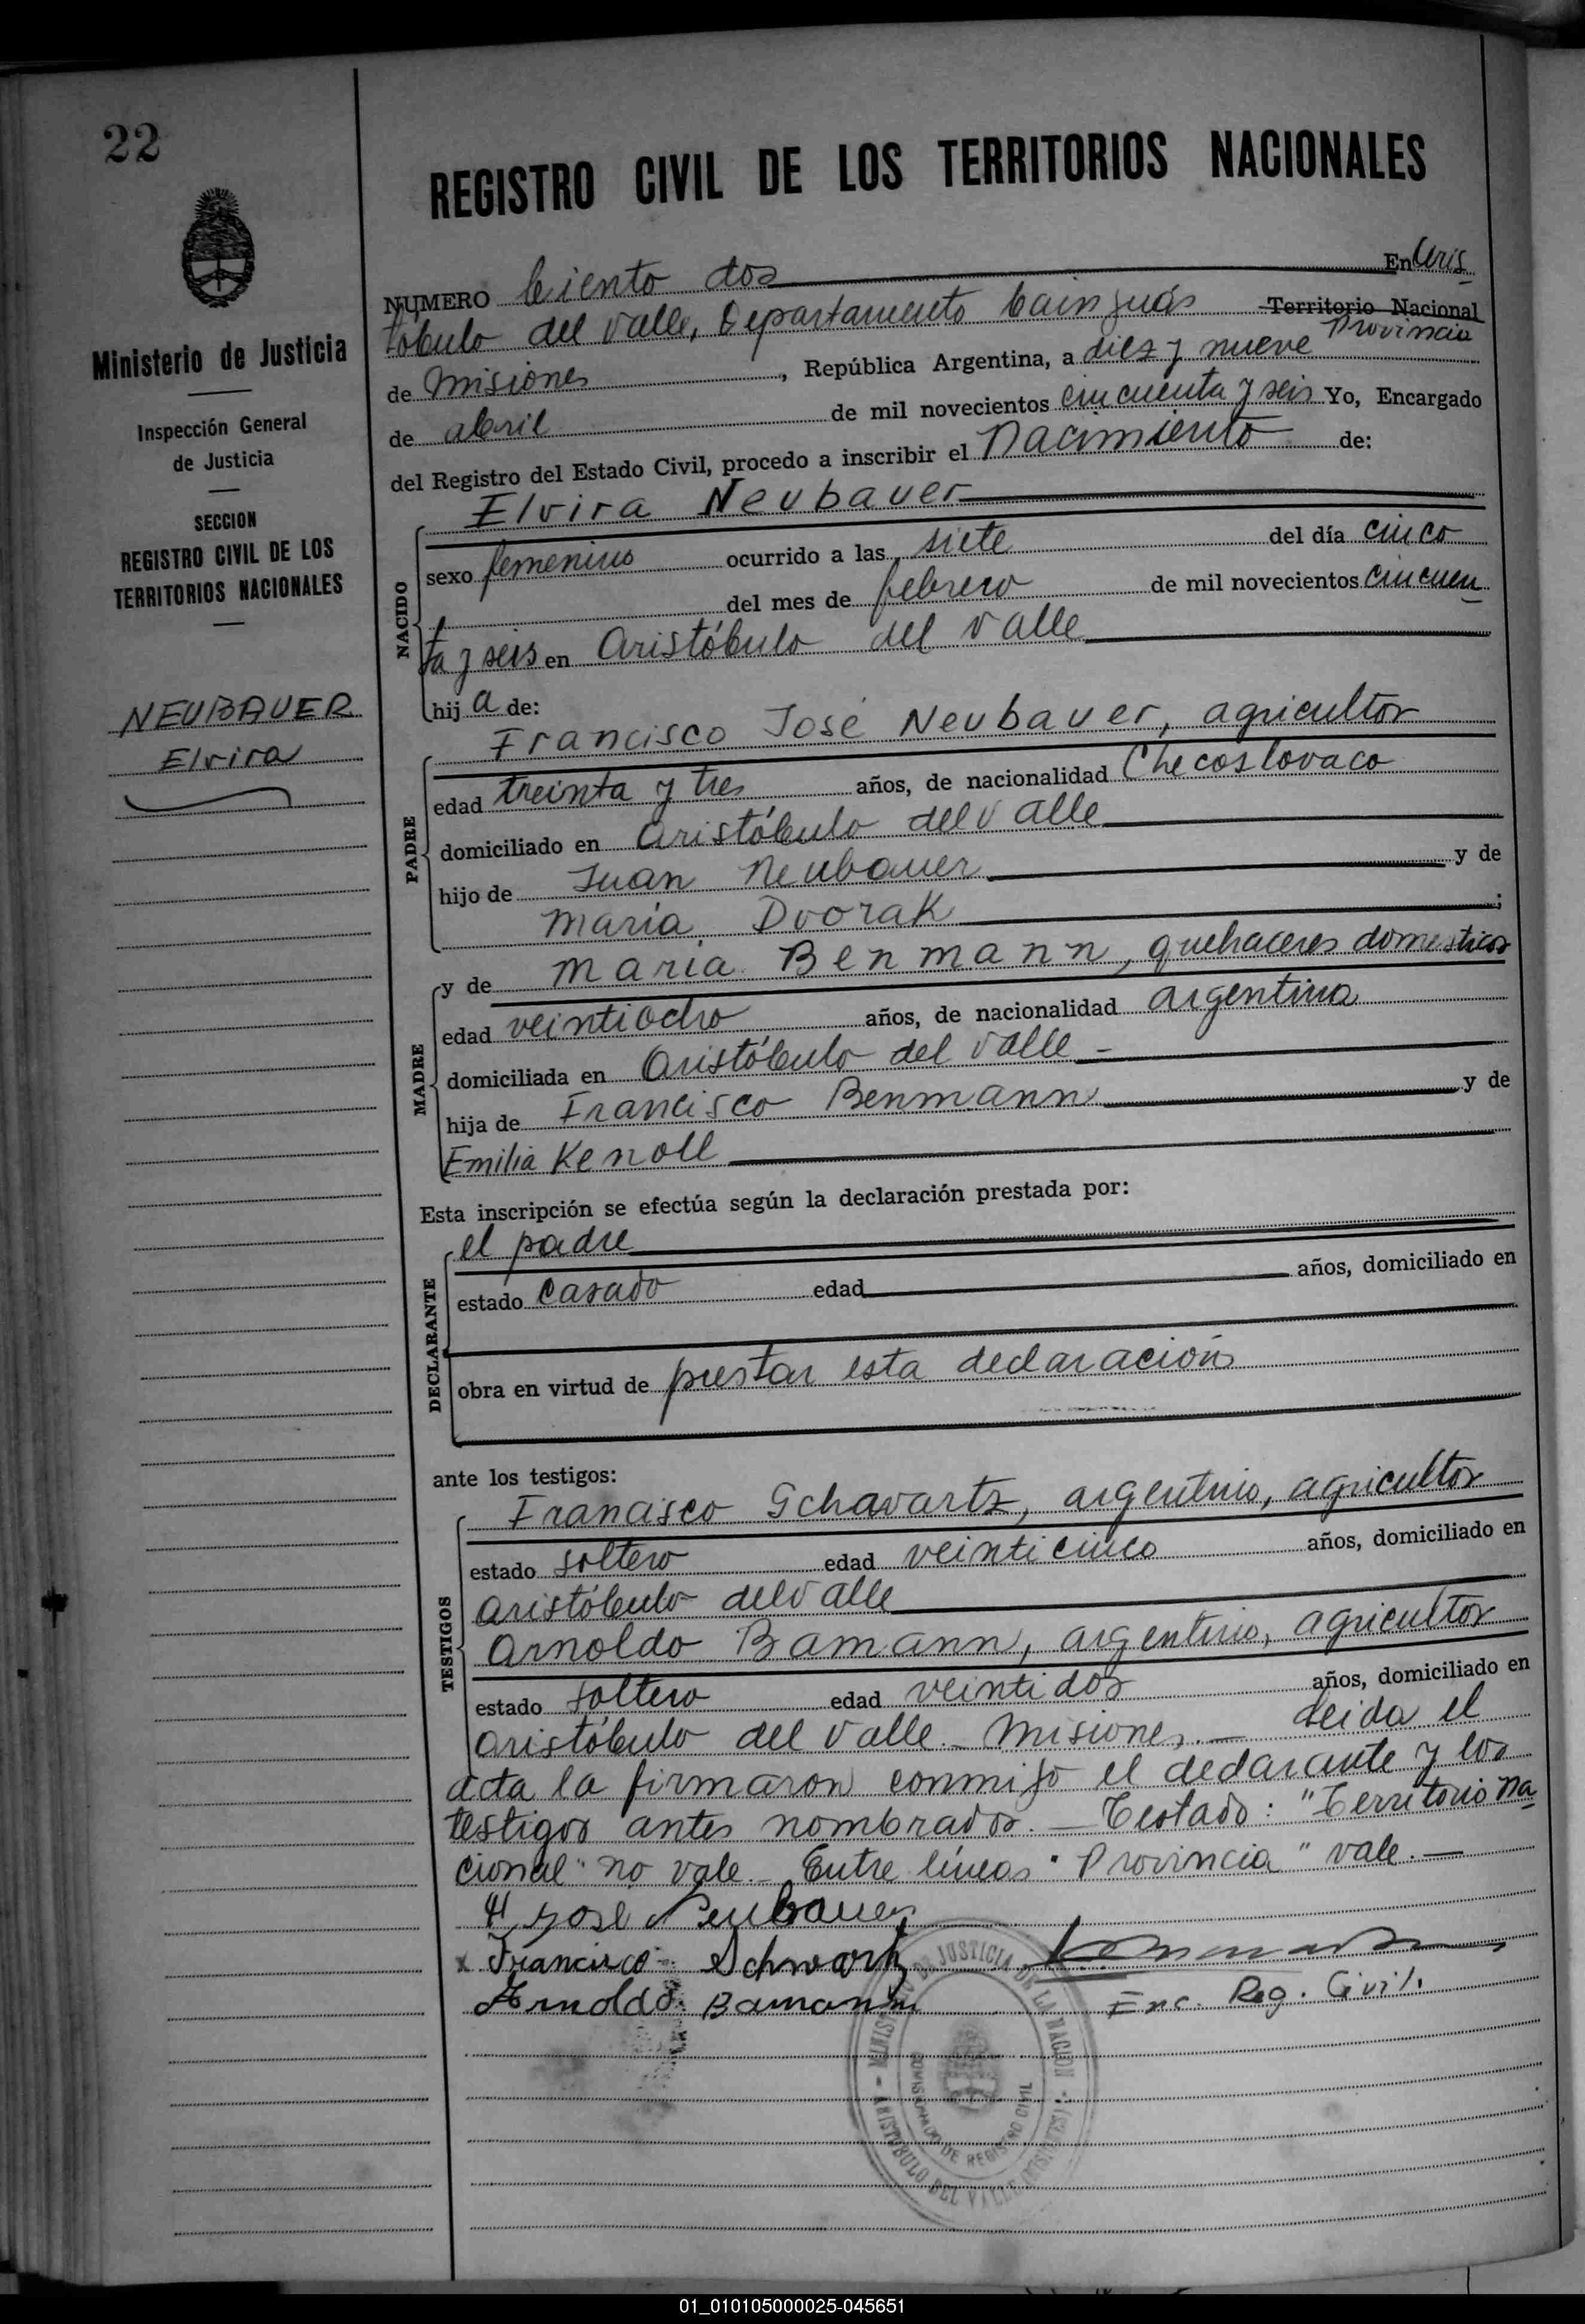 22
Ministerio de Justicia
Inspección General
de Justicia
SECCION
REGISTRO CIVIL DE LOS
TERRITORIOS NACIONALES
NEUBAUER
Elvira
REGISTRO CIVIL DE LOS TERRITORIOS NACIONALES
NUMERO Ciento dos En Aris
tóbulo del Valle, Departamento Cainguás Territorio Nacional
Provincia
de Misiones, República Argentina, a diez y nueve
de abril de mil novecientos cincuenta y seis Yo, Encargado
del Registro del Estado Civil, procedo a inscribir el Nacimiento de:
NACIDO
Elvira Neubauer
sexo femenino ocurrido a las siete del día cinco
del mes de febrero de mil novecientos cincuen
ta y seis en Aristóbulo del Valle
hij a de:
PADRE
Francisco José Neubauer, agricultor
edad treinta y tres años, de nacionalidad Checoslovaco
domiciliado en Aristóbulo del Valle
hijo de Juan Neubauer y de
María Dvorak;
MADRE
y de María Benmann, quehaceres domesticos
edad veintiocho años, de nacionalidad argentina
domiciliada en Aristóbulo del Valle -
hija de Francisco Benmann y de
Emilia Kenoll
Esta inscripción se efectúa según la declaración prestada por:
DECLARANTE
el padre
estado casado edad años, domiciliado en
obra en virtud de prestar esta declaración
ante los testigos:
TESTIGOS
Francisco Schavartz, argentino, agricultor
estado soltero edad veinticinco años, domiciliado en
Aristóbulo del Valle
Arnoldo Bamann, argentino, agricultor
estado soltero edad veintidos años, domiciliado en
Aristóbulo del Valle - Misiones.- Leida el
acta la firmaron conmigo el declarante y los
testigos antes nombrados. - Testado: "Territorio Na
cional" no vale.- Entre líneas "Provincia" vale.-
José Neubauer
x Francisco Schwartz
Arnoldo Bamann
Enc. Reg. Civil.
MINISTERIO DE JUSTICIA DE LA NACION
ARISTOBULO DEL VALLE (MISIONES)
DE REGISTRO CIVIL
01_010105000025-045651